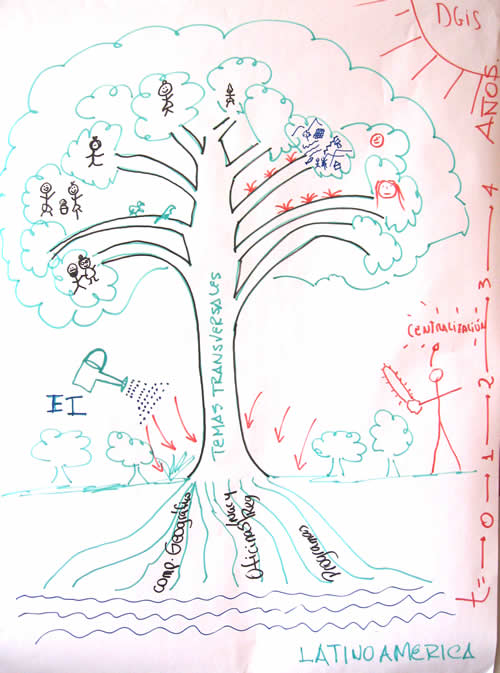 DGIS
AÑOS
4
3
2
1
0
t=
CENTRALIZACIÓN
TEMAS TRANSVERSALES
EI
Comp. Geográfico
Oficinas Reg
Programas
LATINOAMERICA